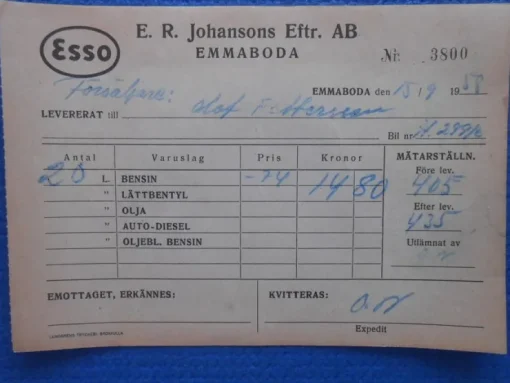 Esso
E. R. Johansons Eftr. AB
EMMABODA
Nr. 3800
Försäljare:
EMMABODA den 15/9 1958
LEVERERAT till Olof
Bil nr
Antal Varuslag Pris Kronor MÄTARSTÄLLN.
20 L. BENSIN -74 14 80 Före lev.
405
" LÄTTBENTYL
" OLJA Efter lev.
" AUTO-DIESEL 435
" OLJEBL. BENSIN Utlämnat av
EMOTTAGET, ERKÄNNES: KVITTERAS:
Expedit